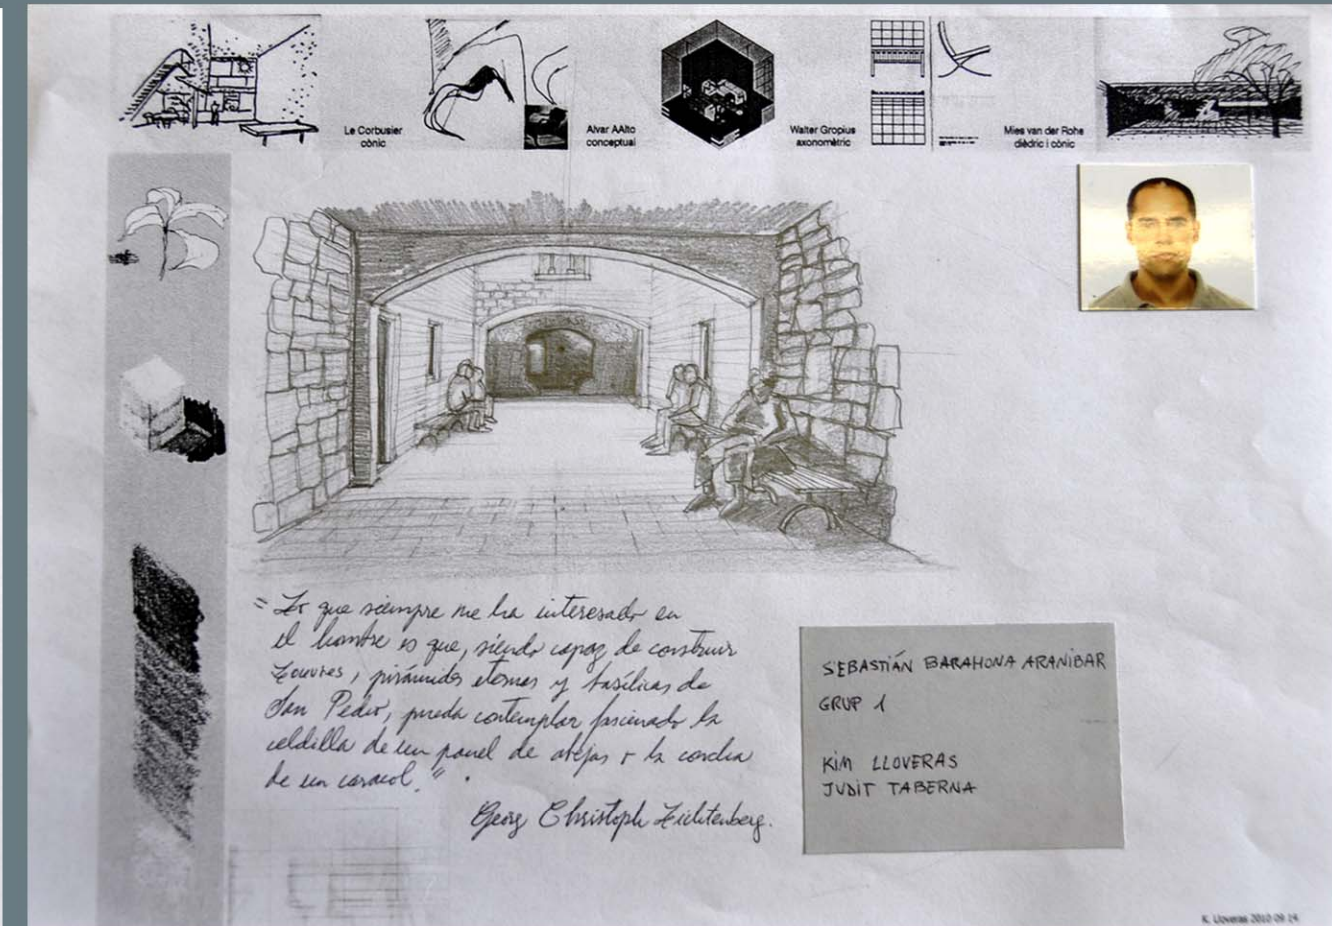 Le Corbusier
cònic
Alvar AAlto
conceptual
Walter Gropius
axonomètric
Mies van der Rohe
dièdric i cònic
"Lo que siempre me ha interesado en
el hombre es que, siendo capaz de construir
Louvres, pirámides eternas y basílicas de
San Pedro, pueda contemplar fascinado la
celdilla de un panel de abejas o la concha
de un caracol."
Georg Christoph Lichtenberg.
SEBASTIÁN BARAHONA ARANIBAR
GRUP 1
KIM LLOVERAS
JUDIT TABERNA
K. Lloveras 2010 09 14